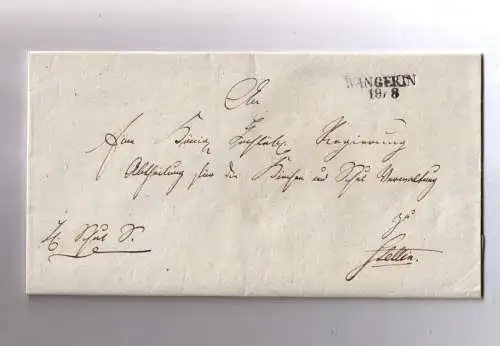 WANGERIN
19/8
An
Eine Königl. Hochlöbl. Regierung
Abtheilung für die Kirchen und Schul Verwaltung
zu
Stettin.
Schul S.